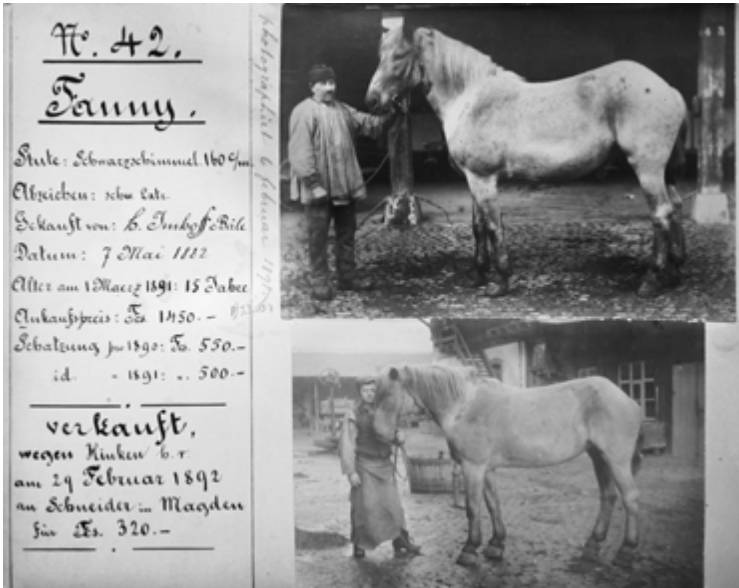 No. 42.
Fanny.
Stute: Schwarzschimmel 160 c/m.
Abzeichen: schw Extr.
Gekauft von: B. Imhoff Bâle
Datum: 7 Mai 1882
Alter am 1 Maerz 1891: 15 Jahre
Ankaufspreis: Fcs. 1450.-
Schatzung pro 1890: Fcs. 550.-
id. " 1891: ". 500.-
verkauft,
wegen Hinken b. r.
am 29 Februar 1892
an Schneider in Magden
für Fcs. 320.-
photographiert 6 februar